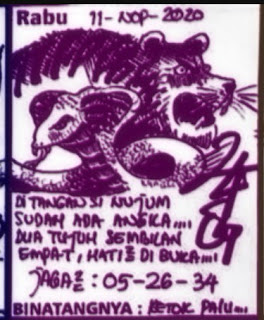 Rabu 11-NOP-2020
DI TANGAN SI NUJUM
SUDAH ADA ANGKA....
DUA TUJUH SEMBILAN
EMPAT, HATI2 DI BUKA....
JAGA2 : 05-26-34
BINATANGNYA : KETOK PALU....